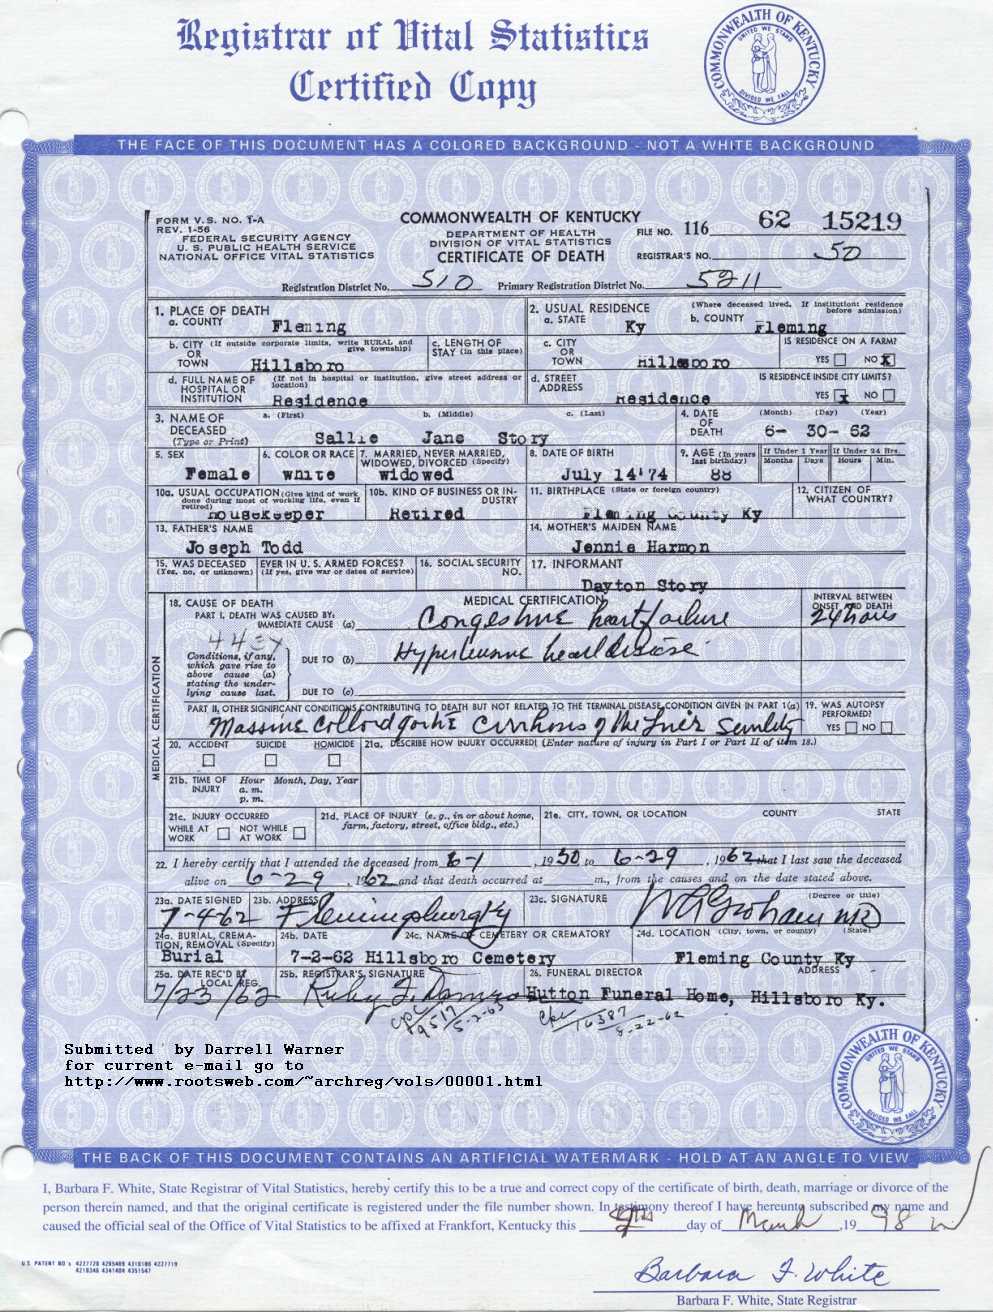 Registrar of Vital Statistics
Certified Copy
COMMONWEALTH OF KENTUCKY
UNITED WE STAND
DIVIDED WE FALL
THE FACE OF THIS DOCUMENT HAS A COLORED BACKGROUND - NOT A WHITE BACKGROUND
FORM V.S. NO. 1-A
REV. 1-56
FEDERAL SECURITY AGENCY
U. S. PUBLIC HEALTH SERVICE
NATIONAL OFFICE VITAL STATISTICS
COMMONWEALTH OF KENTUCKY
DEPARTMENT OF HEALTH
DIVISION OF VITAL STATISTICS
CERTIFICATE OF DEATH
FILE NO. 116 62 15219
REGISTRAR'S NO. 50
Registration District No. 510 Primary Registration District No. 5211
1. PLACE OF DEATH
a. COUNTY Fleming
2. USUAL RESIDENCE (Where deceased lived. If institution: residence before admission)
a. STATE Ky b. COUNTY Fleming
b. CITY (If outside corporate limits, write RURAL and give township) OR TOWN Hillsboro
c. LENGTH OF STAY (in this place)
c. CITY OR TOWN Hillsboro
IS RESIDENCE ON A FARM? YES NO X
d. FULL NAME OF HOSPITAL OR INSTITUTION (If not in hospital or institution, give street address or location) Residence
d. STREET ADDRESS Residence
IS RESIDENCE INSIDE CITY LIMITS? YES X NO
3. NAME OF DECEASED (Type or Print) a. (First) b. (Middle) c. (Last)
Sallie Jane Story
4. DATE OF DEATH (Month) (Day) (Year)
6- 30- 62
5. SEX Female
6. COLOR OR RACE White
7. MARRIED, NEVER MARRIED, WIDOWED, DIVORCED (Specify) Widowed
8. DATE OF BIRTH July 14'74
9. AGE (In years last birthday) 88
If Under 1 Year Months Days
If Under 24 Hrs. Hours Min.
10a. USUAL OCCUPATION (Give kind of work done during most of working life, even if retired) Housekeeper
10b. KIND OF BUSINESS OR INDUSTRY Retired
11. BIRTHPLACE (State or foreign country) Fleming County Ky
12. CITIZEN OF WHAT COUNTRY?
13. FATHER'S NAME
Joseph Todd
14. MOTHER'S MAIDEN NAME
Jennie Harmon
15. WAS DECEASED EVER IN U. S. ARMED FORCES?
(Yes, no, or unknown) (If yes, give war or dates of service)
16. SOCIAL SECURITY NO.
17. INFORMANT
Dayton Story
MEDICAL CERTIFICATION
18. CAUSE OF DEATH
MEDICAL CERTIFICATION
INTERVAL BETWEEN ONSET AND DEATH
PART I. DEATH WAS CAUSED BY:
IMMEDIATE CAUSE (a) Congestive heart failure 24 hours
Conditions, if any, which gave rise to above cause (a) stating the underlying cause last.
DUE TO (b) Hypertensive heart disease
DUE TO (c)
PART II, OTHER SIGNIFICANT CONDITIONS CONTRIBUTING TO DEATH BUT NOT RELATED TO THE TERMINAL DISEASE CONDITION GIVEN IN PART 1(a)
Massive Colloid goitre Cirrhosis of the liver Senility
19. WAS AUTOPSY PERFORMED?
YES NO
20. ACCIDENT SUICIDE HOMICIDE
21a. DESCRIBE HOW INJURY OCCURRED? (Enter nature of injury in Part I or Part II of item 18.)
21b. TIME OF INJURY Hour a. m. p. m. Month, Day, Year
21c. INJURY OCCURRED
WHILE AT WORK NOT WHILE AT WORK
21d. PLACE OF INJURY (e. g., in or about home, farm, factory, street, office bldg., etc.)
21e. CITY, TOWN, OR LOCATION COUNTY STATE
22. I hereby certify that I attended the deceased from 6-1, 1950 to 6-29, 1962 that I last saw the deceased
alive on 6-29, 1962 and that death occurred at m., from the causes and on the date stated above.
23a. DATE SIGNED 7-4-62
23b. ADDRESS Flemingsburg Ky
23c. SIGNATURE (Degree or title)
24a. BURIAL, CREMATION, REMOVAL (Specify) Burial
24b. DATE 7-2-62
24c. NAME OF CEMETERY OR CREMATORY Hillsboro Cemetery
24d. LOCATION (City, town, or county) (State) Fleming County Ky
25a. DATE REC'D BY LOCAL REG. 7/23/62
25b. REGISTRAR'S SIGNATURE
26. FUNERAL DIRECTOR ADDRESS
Hutton Funeral Home, Hillsboro Ky.
16387
8-22-62
Submitted by Darrell Warner
for current e-mail go to
http://www.rootsweb.com/~archreg/vols/00001.html
COMMONWEALTH OF KENTUCKY
UNITED WE STAND
DIVIDED WE FALL
THE BACK OF THIS DOCUMENT CONTAINS AN ARTIFICIAL WATERMARK - HOLD AT AN ANGLE TO VIEW
I, Barbara F. White, State Registrar of Vital Statistics, hereby certify this to be a true and correct copy of the certificate of birth, death, marriage or divorce of the
person therein named, and that the original certificate is registered under the file number shown. In testimony thereof I have hereunto subscribed my name and
caused the official seal of the Office of Vital Statistics to be affixed at Frankfort, Kentucky this day of March, 1998
U.S. PATENT NO's 4227720 4265469 4310180 4227719
4210346 4341404 4351547
Barbara F. White
Barbara F. White, State Registrar